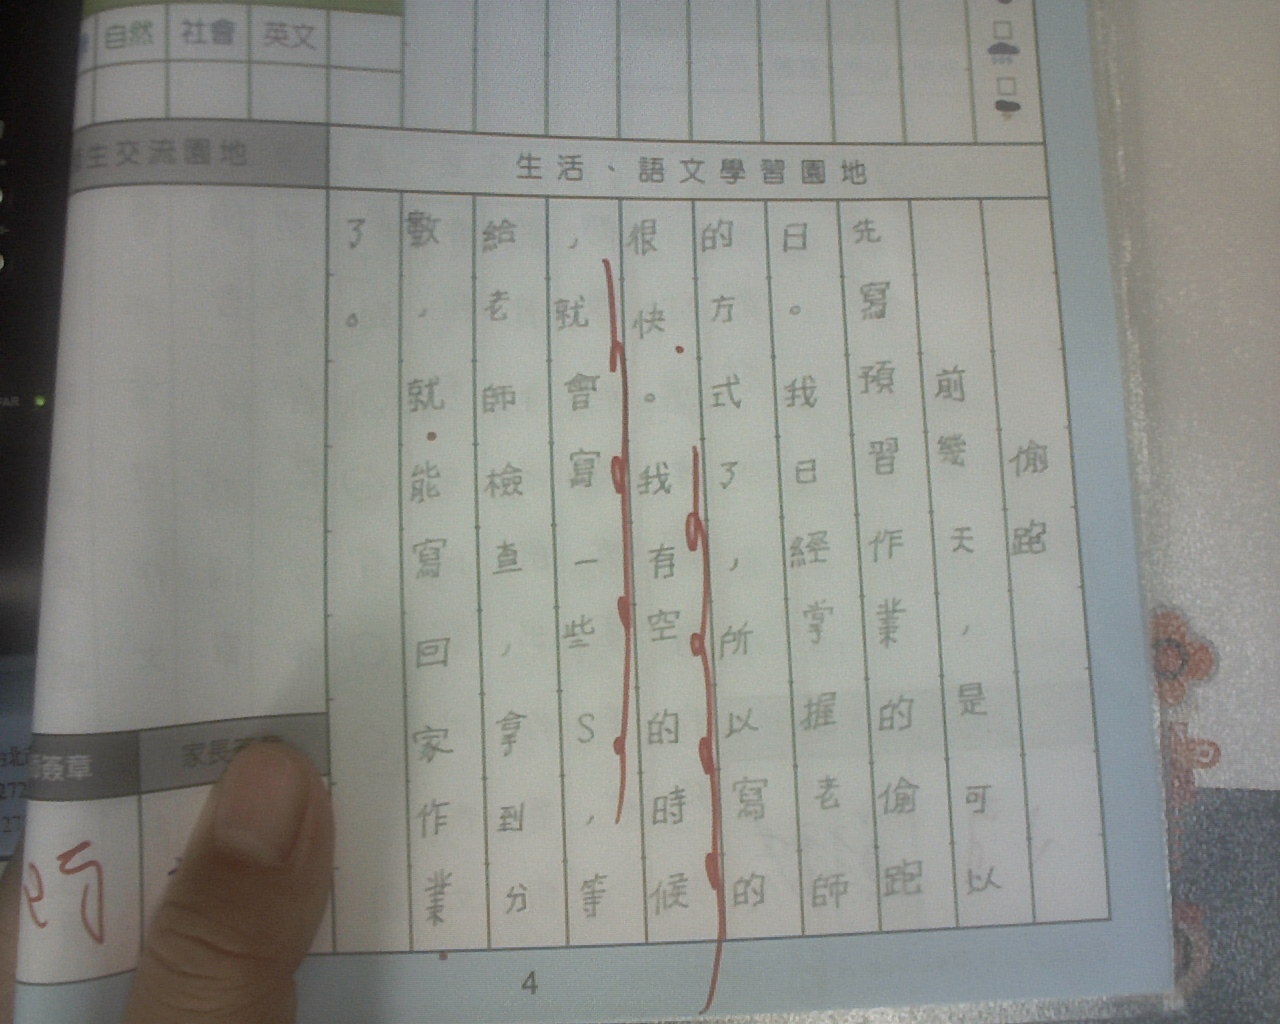 自然 社會 英文
生活、語文學習園地
偷跑
前幾天，是可以
先寫預習作業的偷跑
日。我日經掌握老師
的方式了，所以寫的
很快。我有空的時候
，就會寫一些S，等
給老師檢查，拿到分
數，就能寫回家作業
了。
生交流園地
簽章
家長
4